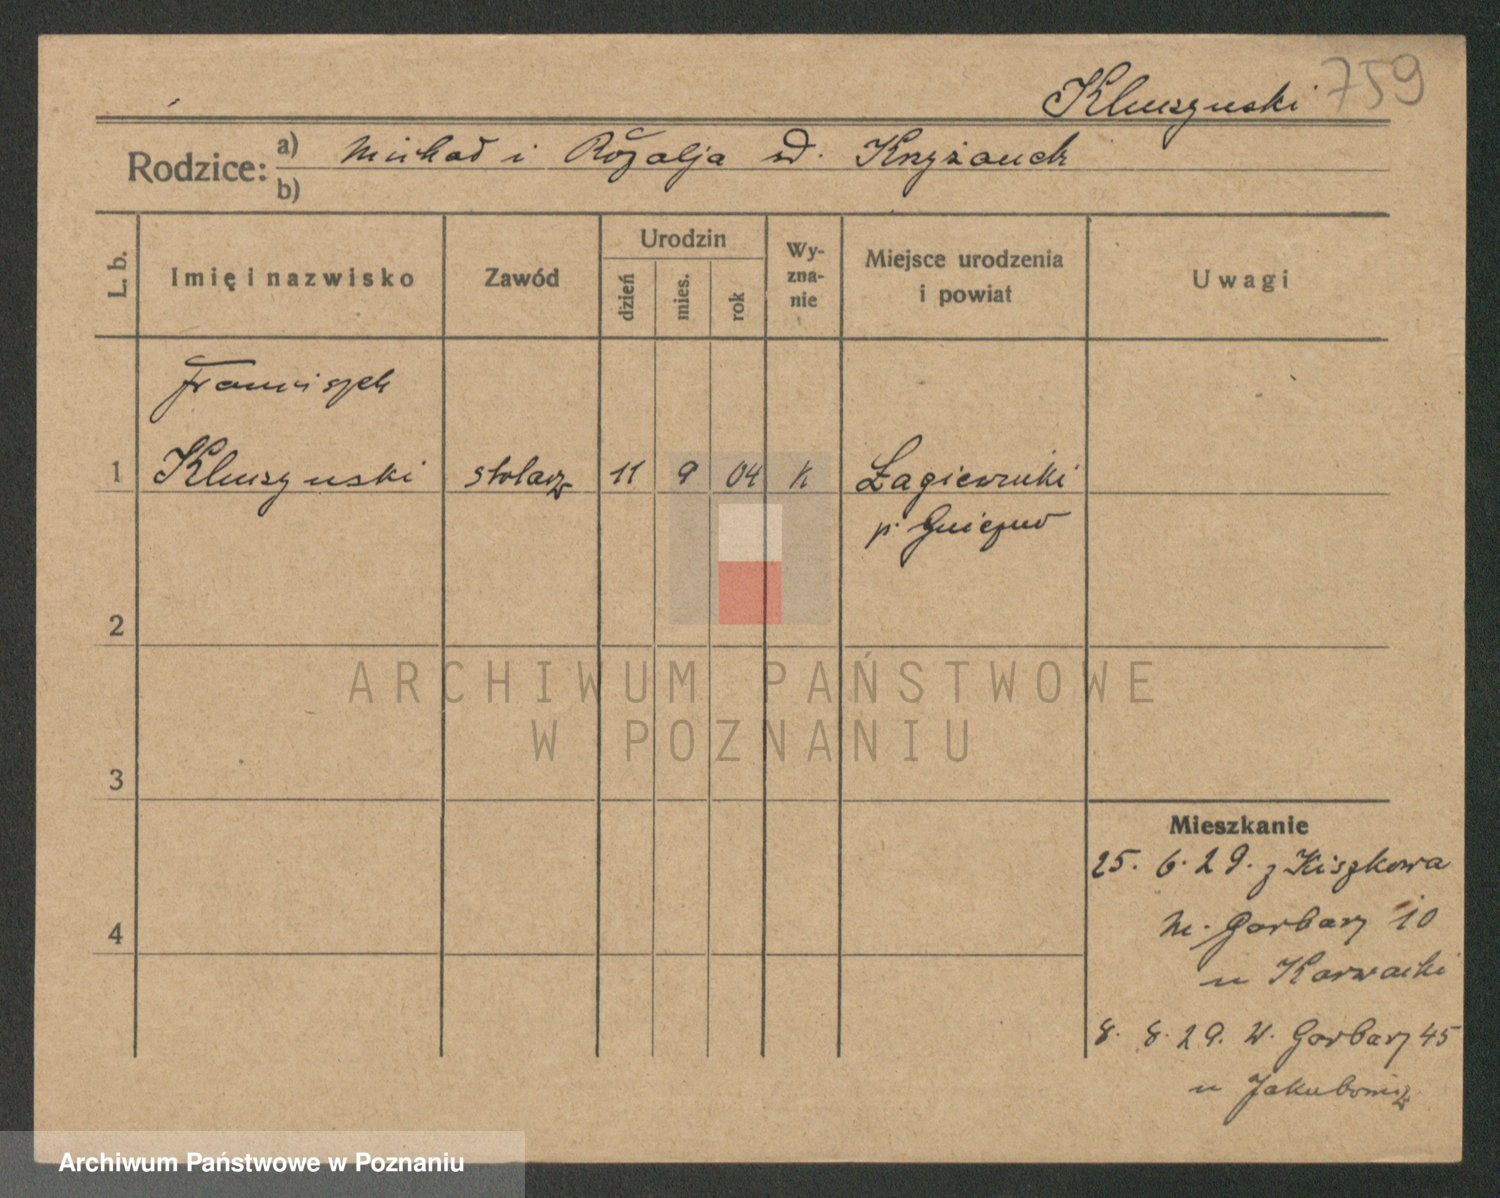 Kluszynski 759
Rodzice:
a) Michał i Rozalja zd. Krzyżanek
b)
L. b.
Imię i nazwisko
Zawód
Urodzin
dzień
mies.
rok
Wy-
zna-
nie
Miejsce urodzenia
i powiat
Uwagi
Franciszek
1 Kluszynski stolarz 11 9 04 k Łagiewniki
p. Gniezno
2
3
4
Mieszkanie
25. 6. 29. z Kiszkowa
M. Garbary 10
u Karwacki
8. 8. 29. W. Garbary 45
u Jakubowicz
ARCHIWUM PAŃSTWOWE
W POZNANIU
Archiwum Państwowe w Poznaniu